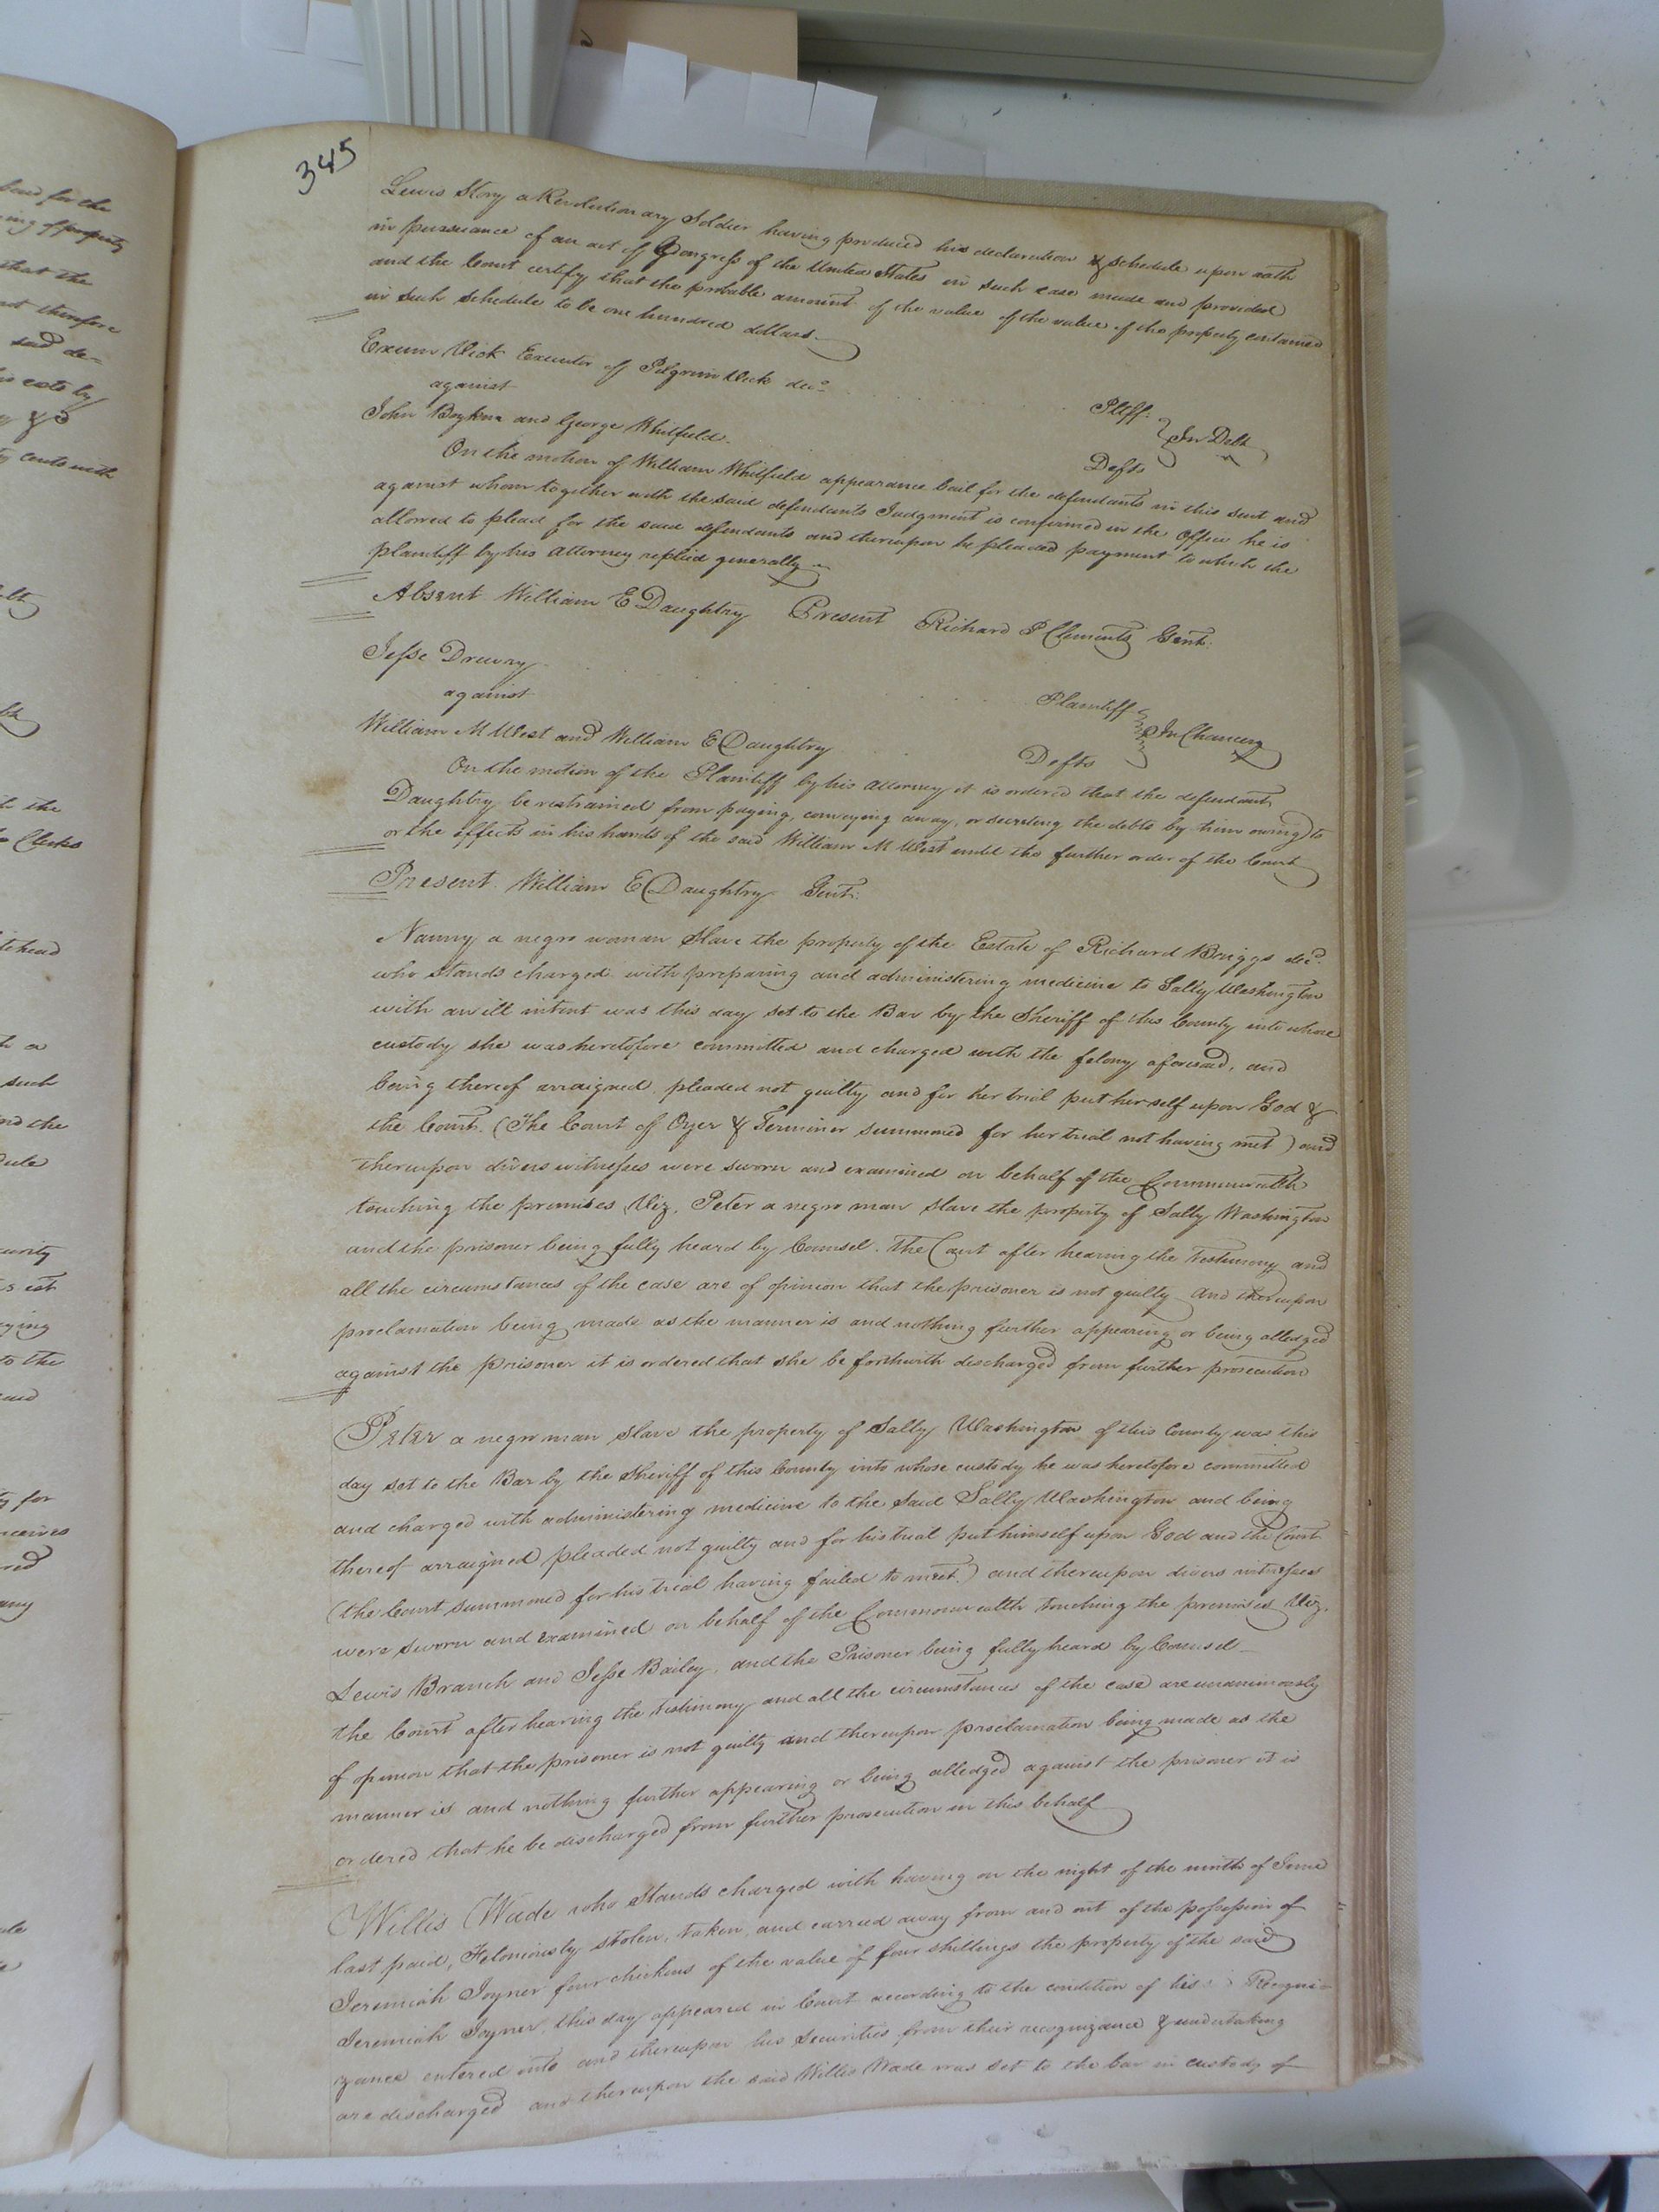 345
Lewis Story a Revolutionary Soldier having produced his declaration & schedule upon oath
in pursuance of an act of Congress of the United States in such case made and provided
and the Court certify that the probable amount of the value of the value of the property contained
in such schedule to be one hundred dollars.
Exum Vick Executor of Pilgrim Vick decd.
Pltff.
against
In Debt
John Boykin and George Whitfield
Defts
On the motion of William Whitfield appearance bail for the defendants in this suit and
against whom together with the said defendants Judgment is confirmed in the Office he is
allowed to plead for the said defendants and thereupon he pleaded payment to which the
plaintiff by his attorney replied generally
Absent William E Daughtry Present Richard P Clements Gent.
Jesse Drewry
Plaintiff
against
In Chancery
William M West and William E Daughtry
Defts
On the motion of the Plaintiff by his attorney it is ordered that the defendant
Daughtry be restrained from paying, conveying away, or secreting the debts by him owing to
or the effects in his hands of the said William M West until the further order of the Court
Present William E Daughtry Gent.
Nanny a negro woman Slave the property of the Estate of Richard Briggs decd.
who stands charged with preparing and administering medicine to Sally Washington
with an ill intent was this day set to the Bar by the Sheriff of this County into whose
custody she was heretofore committed and charged with the felony aforesaid, and
being thereof arraigned pleaded not guilty and for her trial put herself upon God &
the Court. (The Court of Oyer & Terminer summoned for her trial not having met) and
thereupon divers witnesses were sworn and examined on behalf of the Commonwealth
touching the premises Viz. Peter a negro man slave the property of Sally Washington
and the prisoner being fully heard by Counsel. The Court after hearing the Testimony and
all the circumstances of the case are of opinion that the prisoner is not guilty and thereupon
proclamation being made as the manner is and nothing further appearing or being alledged
against the prisoner it is ordered that she be forthwith discharged from further prosecution
Peter a negro man slave the property of Sally Washington of this County was this
day set to the Bar by the Sheriff of this County into whose custody he was heretofore committed
and charged with administering medicine to the said Sally Washington and being
thereof arraigned pleaded not guilty and for his trial put himself upon God and the Court
(the Court summoned for his trial having failed to meet.) and thereupon divers witnesses
were sworn and examined on behalf of the Commonwealth touching the premises Viz.
Lewis Branch and Jesse Bailey, and the Prisoner being fully heard by Counsel
the Court after hearing the testimony and all the circumstances of the case are unanimously
of opinion that the prisoner is not guilty and thereupon proclamation being made as the
manner is and nothing further appearing or being alledged against the prisoner it is
ordered that he be discharged from further prosecution in this behalf
Willis Wade who stands charged with having on the night of the ninth of June
last past, Feloniously stolen, taken, and carried away from and out of the possession of
Jeremiah Joyner four chickens of the value of four shillings the property of the said
Jeremiah Joyner, this day appeared in Court according to the condition of his Recogni-
zance entered into and thereupon his Securities from their recognizance & undertaking
are discharged and thereupon the said Willis Wade was set to the bar in custody of